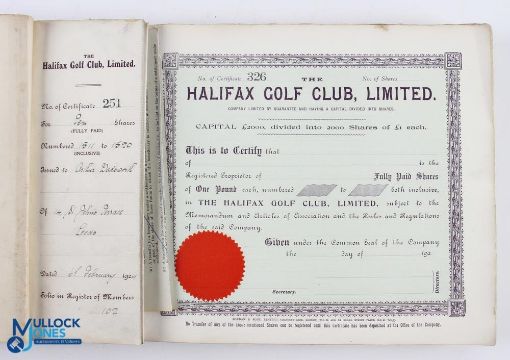 THE
Halifax Golf Club, Limited.
No. of Certificate 251
For Ten Shares
(FULLY PAID)
Numbered 1511 to 1520
(INCLUSIVE)
Issued to
Of
Leeds
Dated February 192
Folio in Register of Members
107
No. of Certificate 326 THE No. of Shares
HALIFAX GOLF CLUB, LIMITED.
COMPANY LIMITED BY GUARANTEE AND HAVING A CAPITAL DIVIDED INTO SHARES.
CAPITAL £2000, divided into 2000 Shares of £1 each.
This is to Certify that
of to the
Registered Proprietor of Fully Paid Shares
of One Pound each, numbered to both inclusive,
in THE HALIFAX GOLF CLUB, LIMITED, subject to the
Memorandum and Articles of Association and the Rules and Regulations
of the said Company.
Given under the Common Seal of the Company
the day of 192
Directors.
Secretary.
No Transfer of any of the above mentioned Shares can be registered until this certificate has been deposited at the Office of the Company.
MULLOCK
JONES
Auctioneers & Valuers